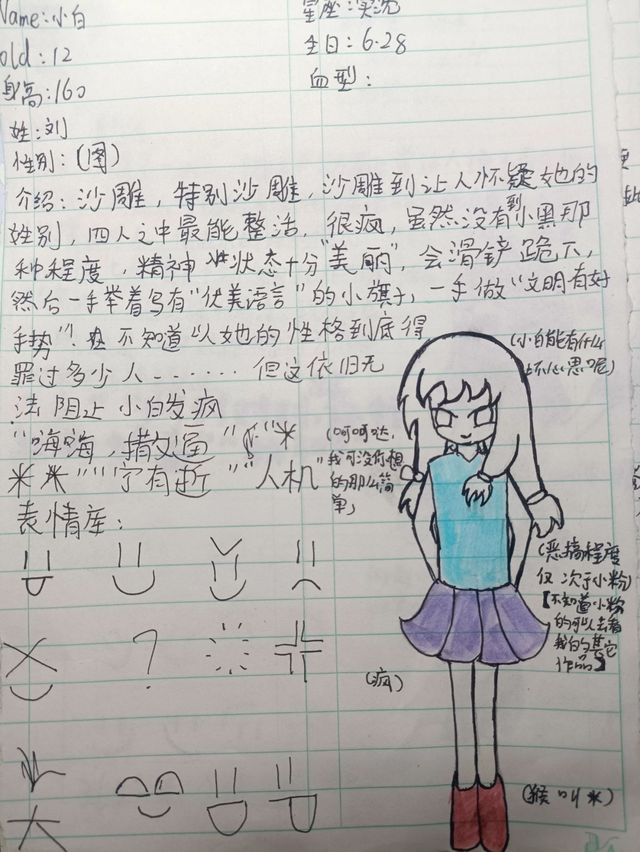 Name:小白
old:12
身高:160
姓:刘
性别:(图)
星座:
生日:6·28
血型:
介绍:沙雕,特别沙雕,沙雕到让人怀疑她的
姓别,四人之中最能整活,很疯,虽然没有到小黑那
种程度,精神状态十分"美丽",会滑铲跪下,
然后一手举着写有"优美语言"的小旗子,一手做"文明有好
手势"!不知道以她的性格到底得
罪过多少人……但这依旧无
法阻止小白发疯
"嗨嗨,撒逼"
"了有逝""人机"
表情库:
(小白能有什么
坏心思呢)
(呵呵哒,
我可没有想
的那么简
单)
(恶搞程度
仅次于小粉)
【不知道小粉
的可以去看
我的其它
作品】
(疯)
(猴叫*)